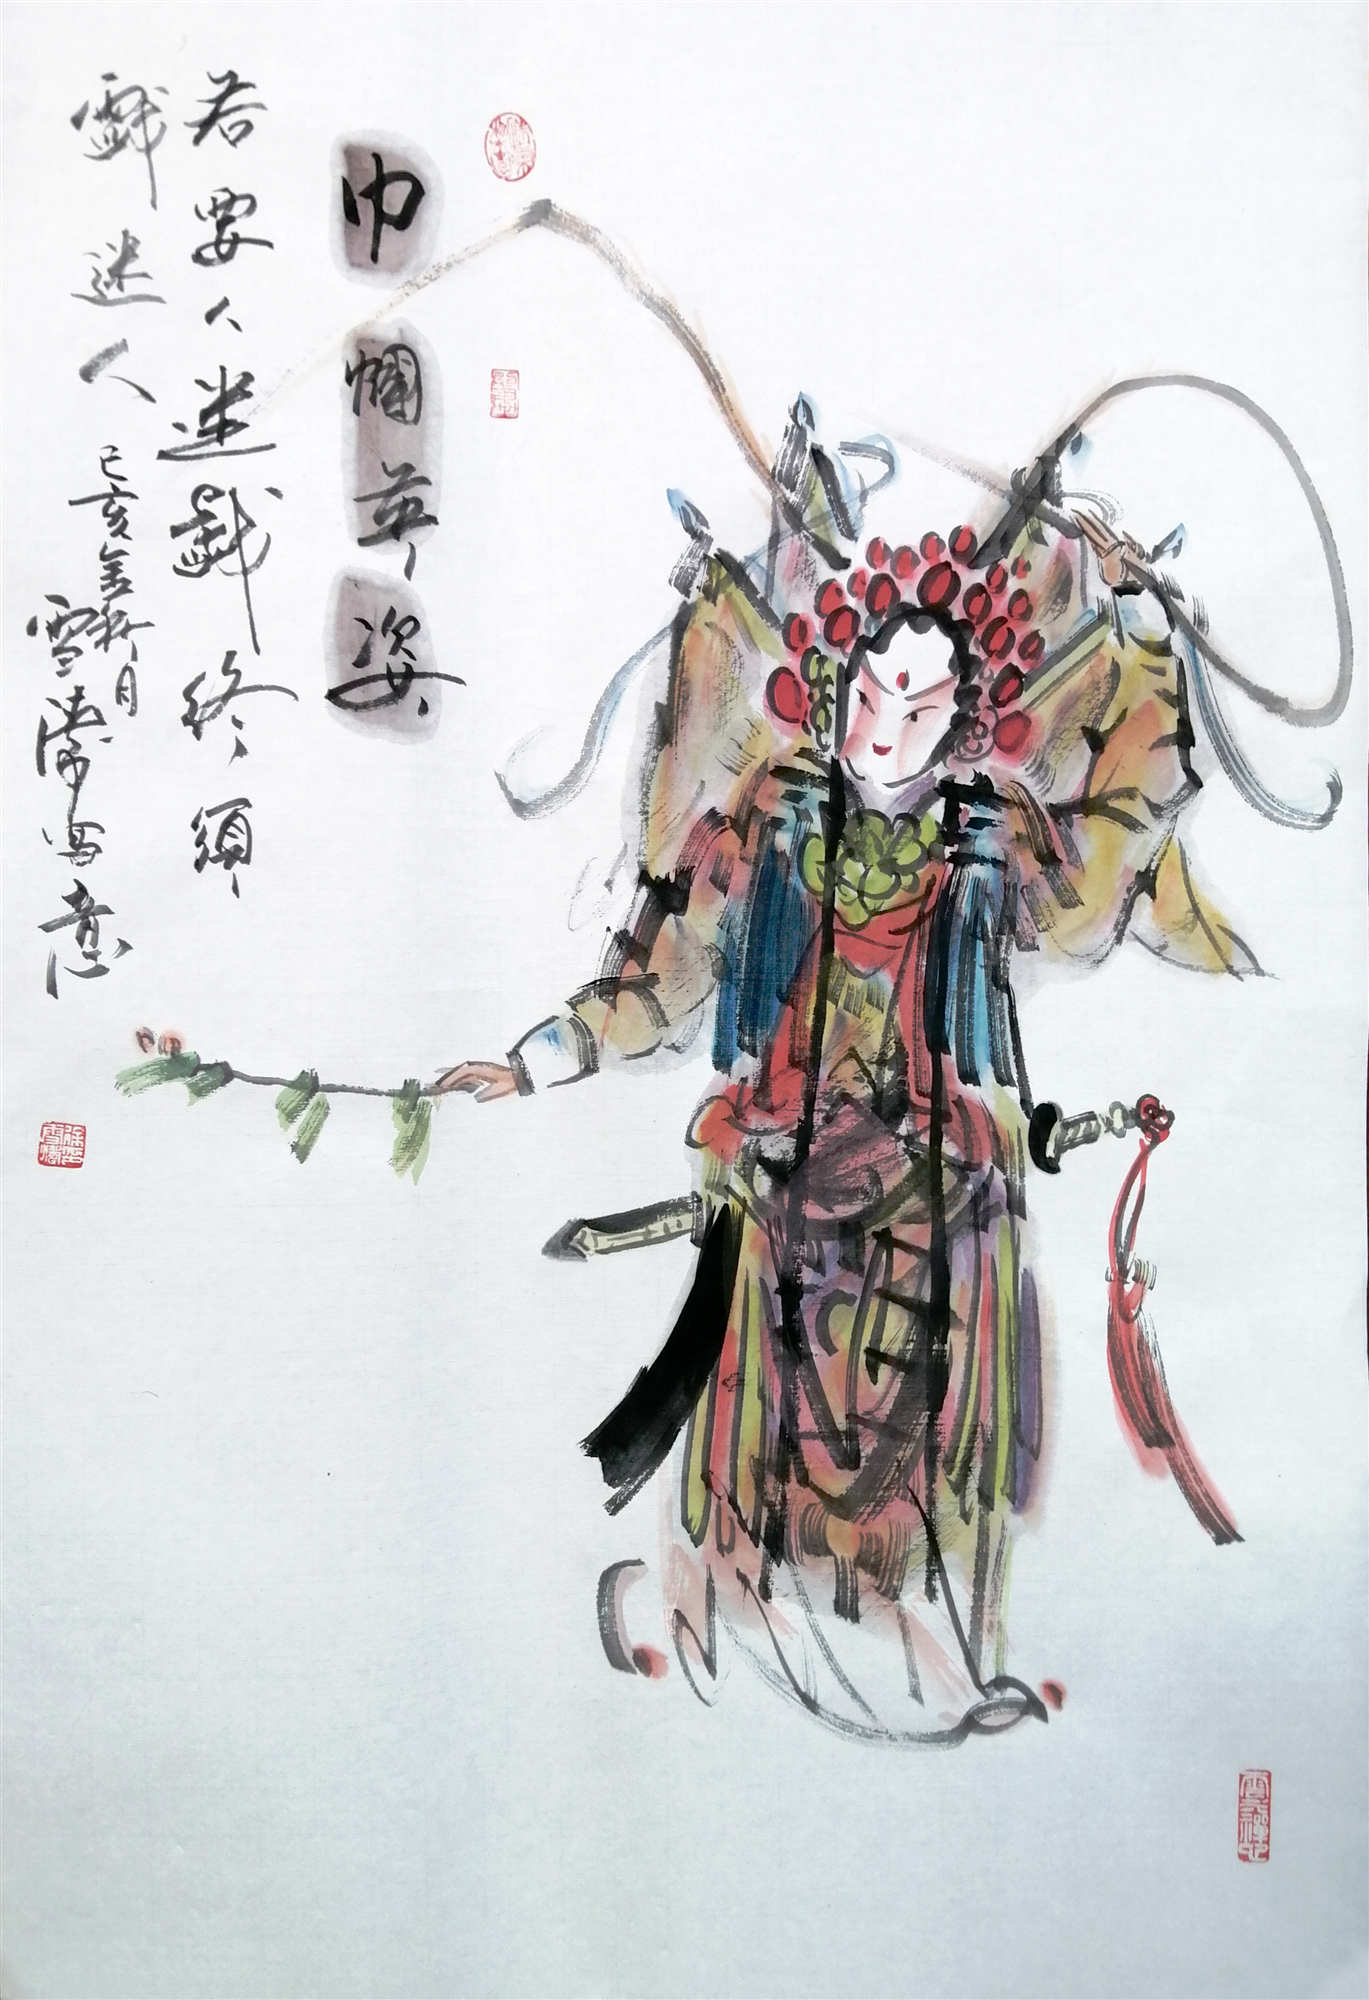 巾帼英姿
若要人迷戏终须
戏迷人
己亥年新月
雪涛写意